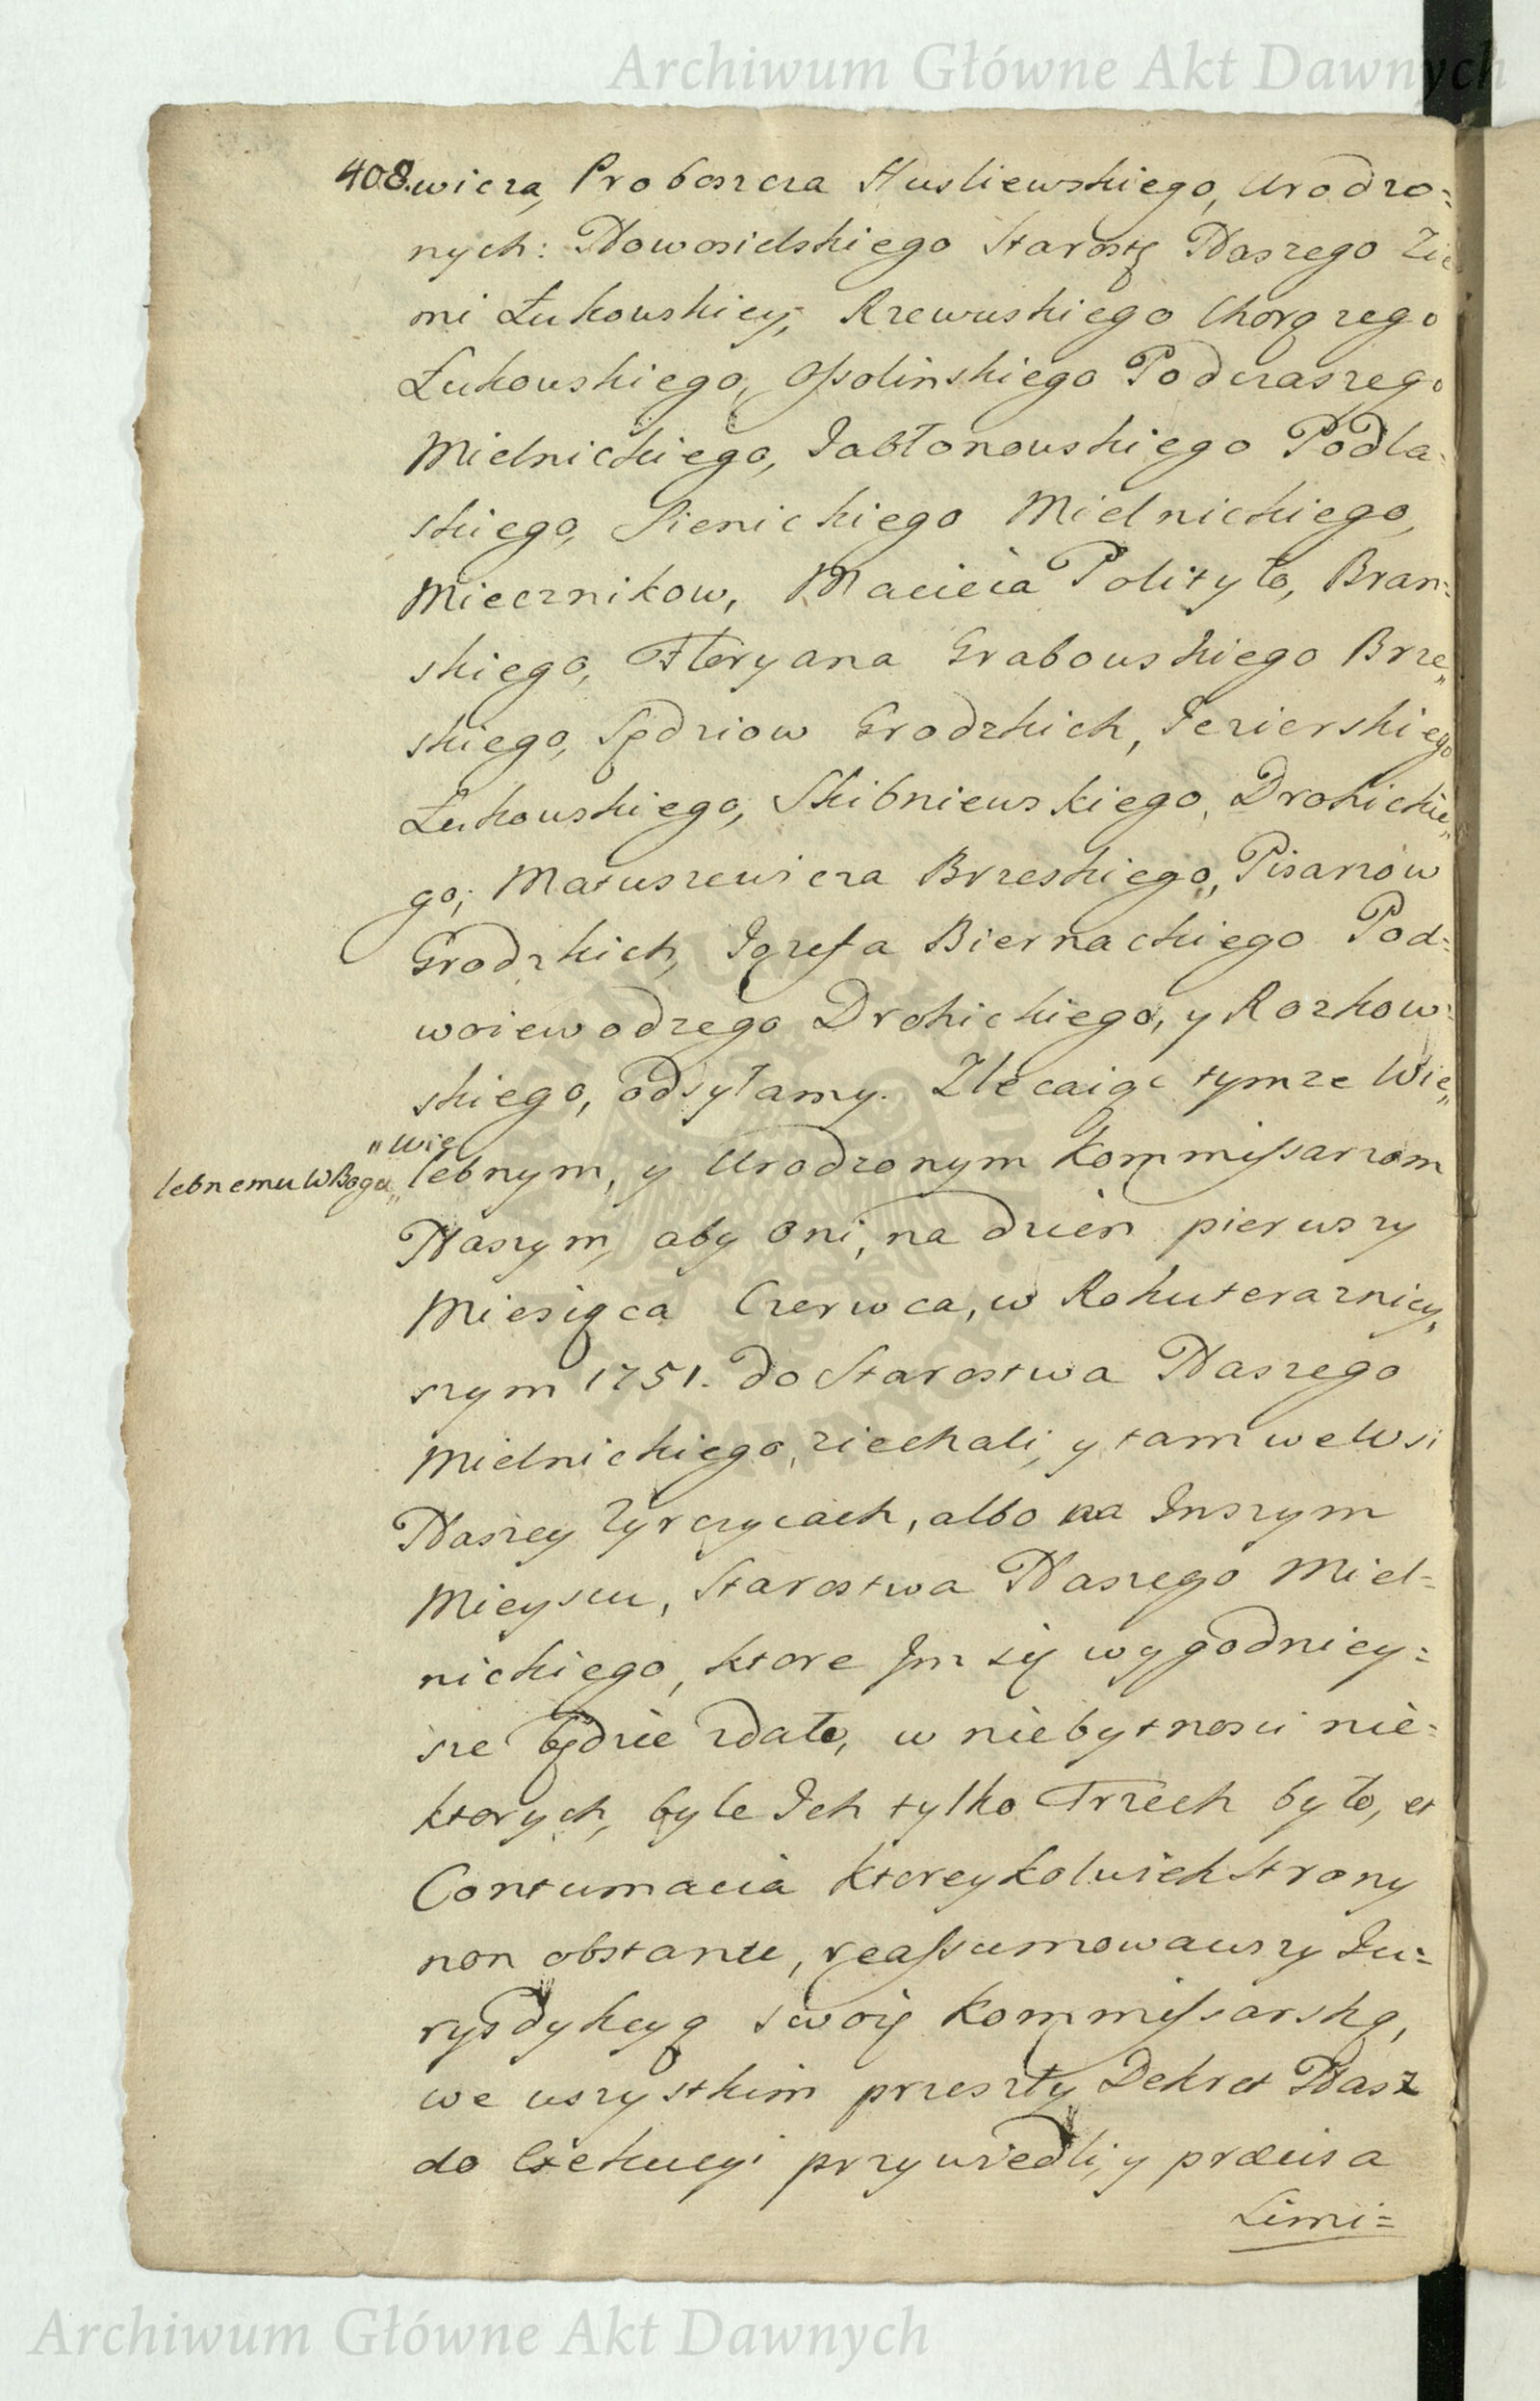 Archiwum Główne Akt Dawnych
408. wicza, Proboszcza Husliewskiego, Urodzo=
nych: Nowosielskiego Starostę Naszego Zie
mi Łukowskiey, Rzewuskiego Chorązego
Łukowskiego, Ossolinskiego Podczaszego
Mielnickiego, Jabłonowskiego Podla=
skiego, Sienickiego Mielnickiego,
Miecznikow, Macieia Polityło, Bran=
skiego, Floryana Grabowskiego Brze„
skiego, Sędziow Grodzkich, Jezierskiego
Łukowskiego, Skibniewskiego, Drohickie„
go, Matuszewicza Brzeskiego, Pisarzow
Grodzkich, Jozefa Biernackiego Pod=
woiewodzego Drohickiego, y Rozkow=
skiego, odsyłamy. Zlecaiąc tymze Wie„
„Wie
lebnemu W Bogu„
lebnym, y Urodzonym Kommissarzom
Naszym, aby Oni, na dzień pierwszy
Miesiąca Czerwca, w Roku terazniey„
szym 1751. do Starostwa Naszego
Mielnickiego, ziechali, y tam we Wsi
Naszey Zyrczycach, albo na Inszym
Mieyscu, Starostwa Naszego Miel=
nickiego, ktore Im się wygodniey=
sze będzie zdało, w niebytnosci nie=
ktorych, byle Ich tylko Trzech było, et
Contumacia ktoreykolwiek strony
non obstante, reassumowawszy Ju=
rysdykcyą swoię Kommissarską,
we wszystkim przeszły Dekret Nasz
do Exekucyi przywiedli, y præcisa
Limi=
Archiwum Główne Akt Dawnych